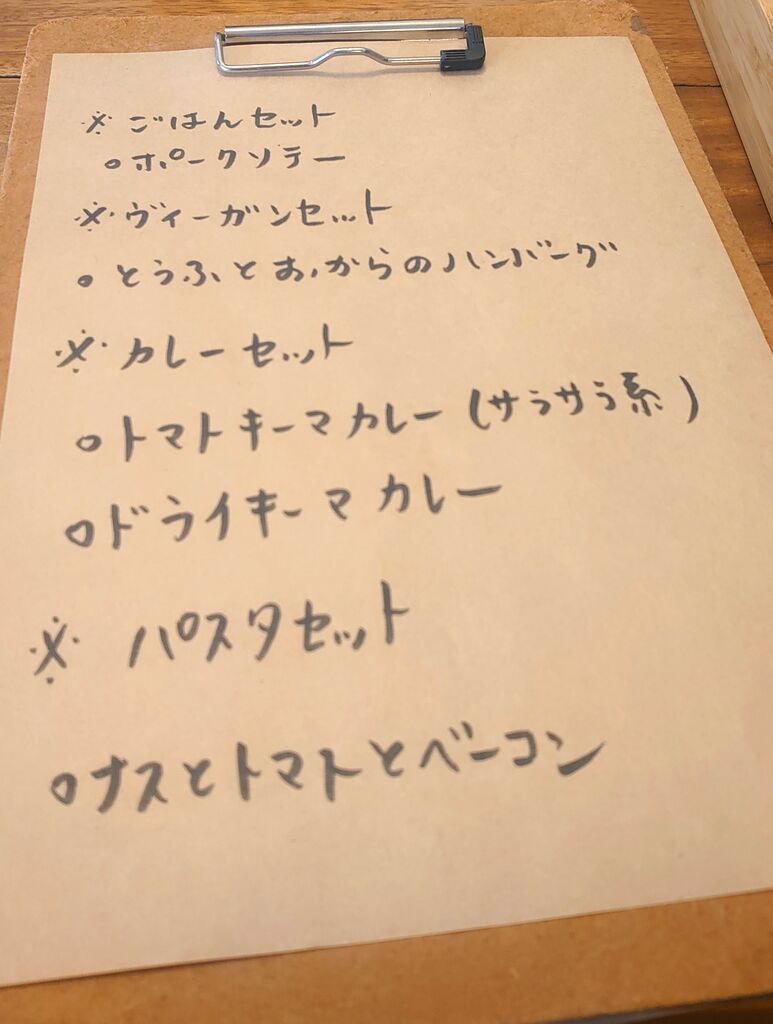 ※ごはんセット
○ポークソテー
※ヴィーガンセット
○とうふとおからのハンバーグ
※カレーセット
○トマトキーマカレー(サラサラ系)
○ドライキーマカレー
※パスタセット
○ナスとトマトとベーコン